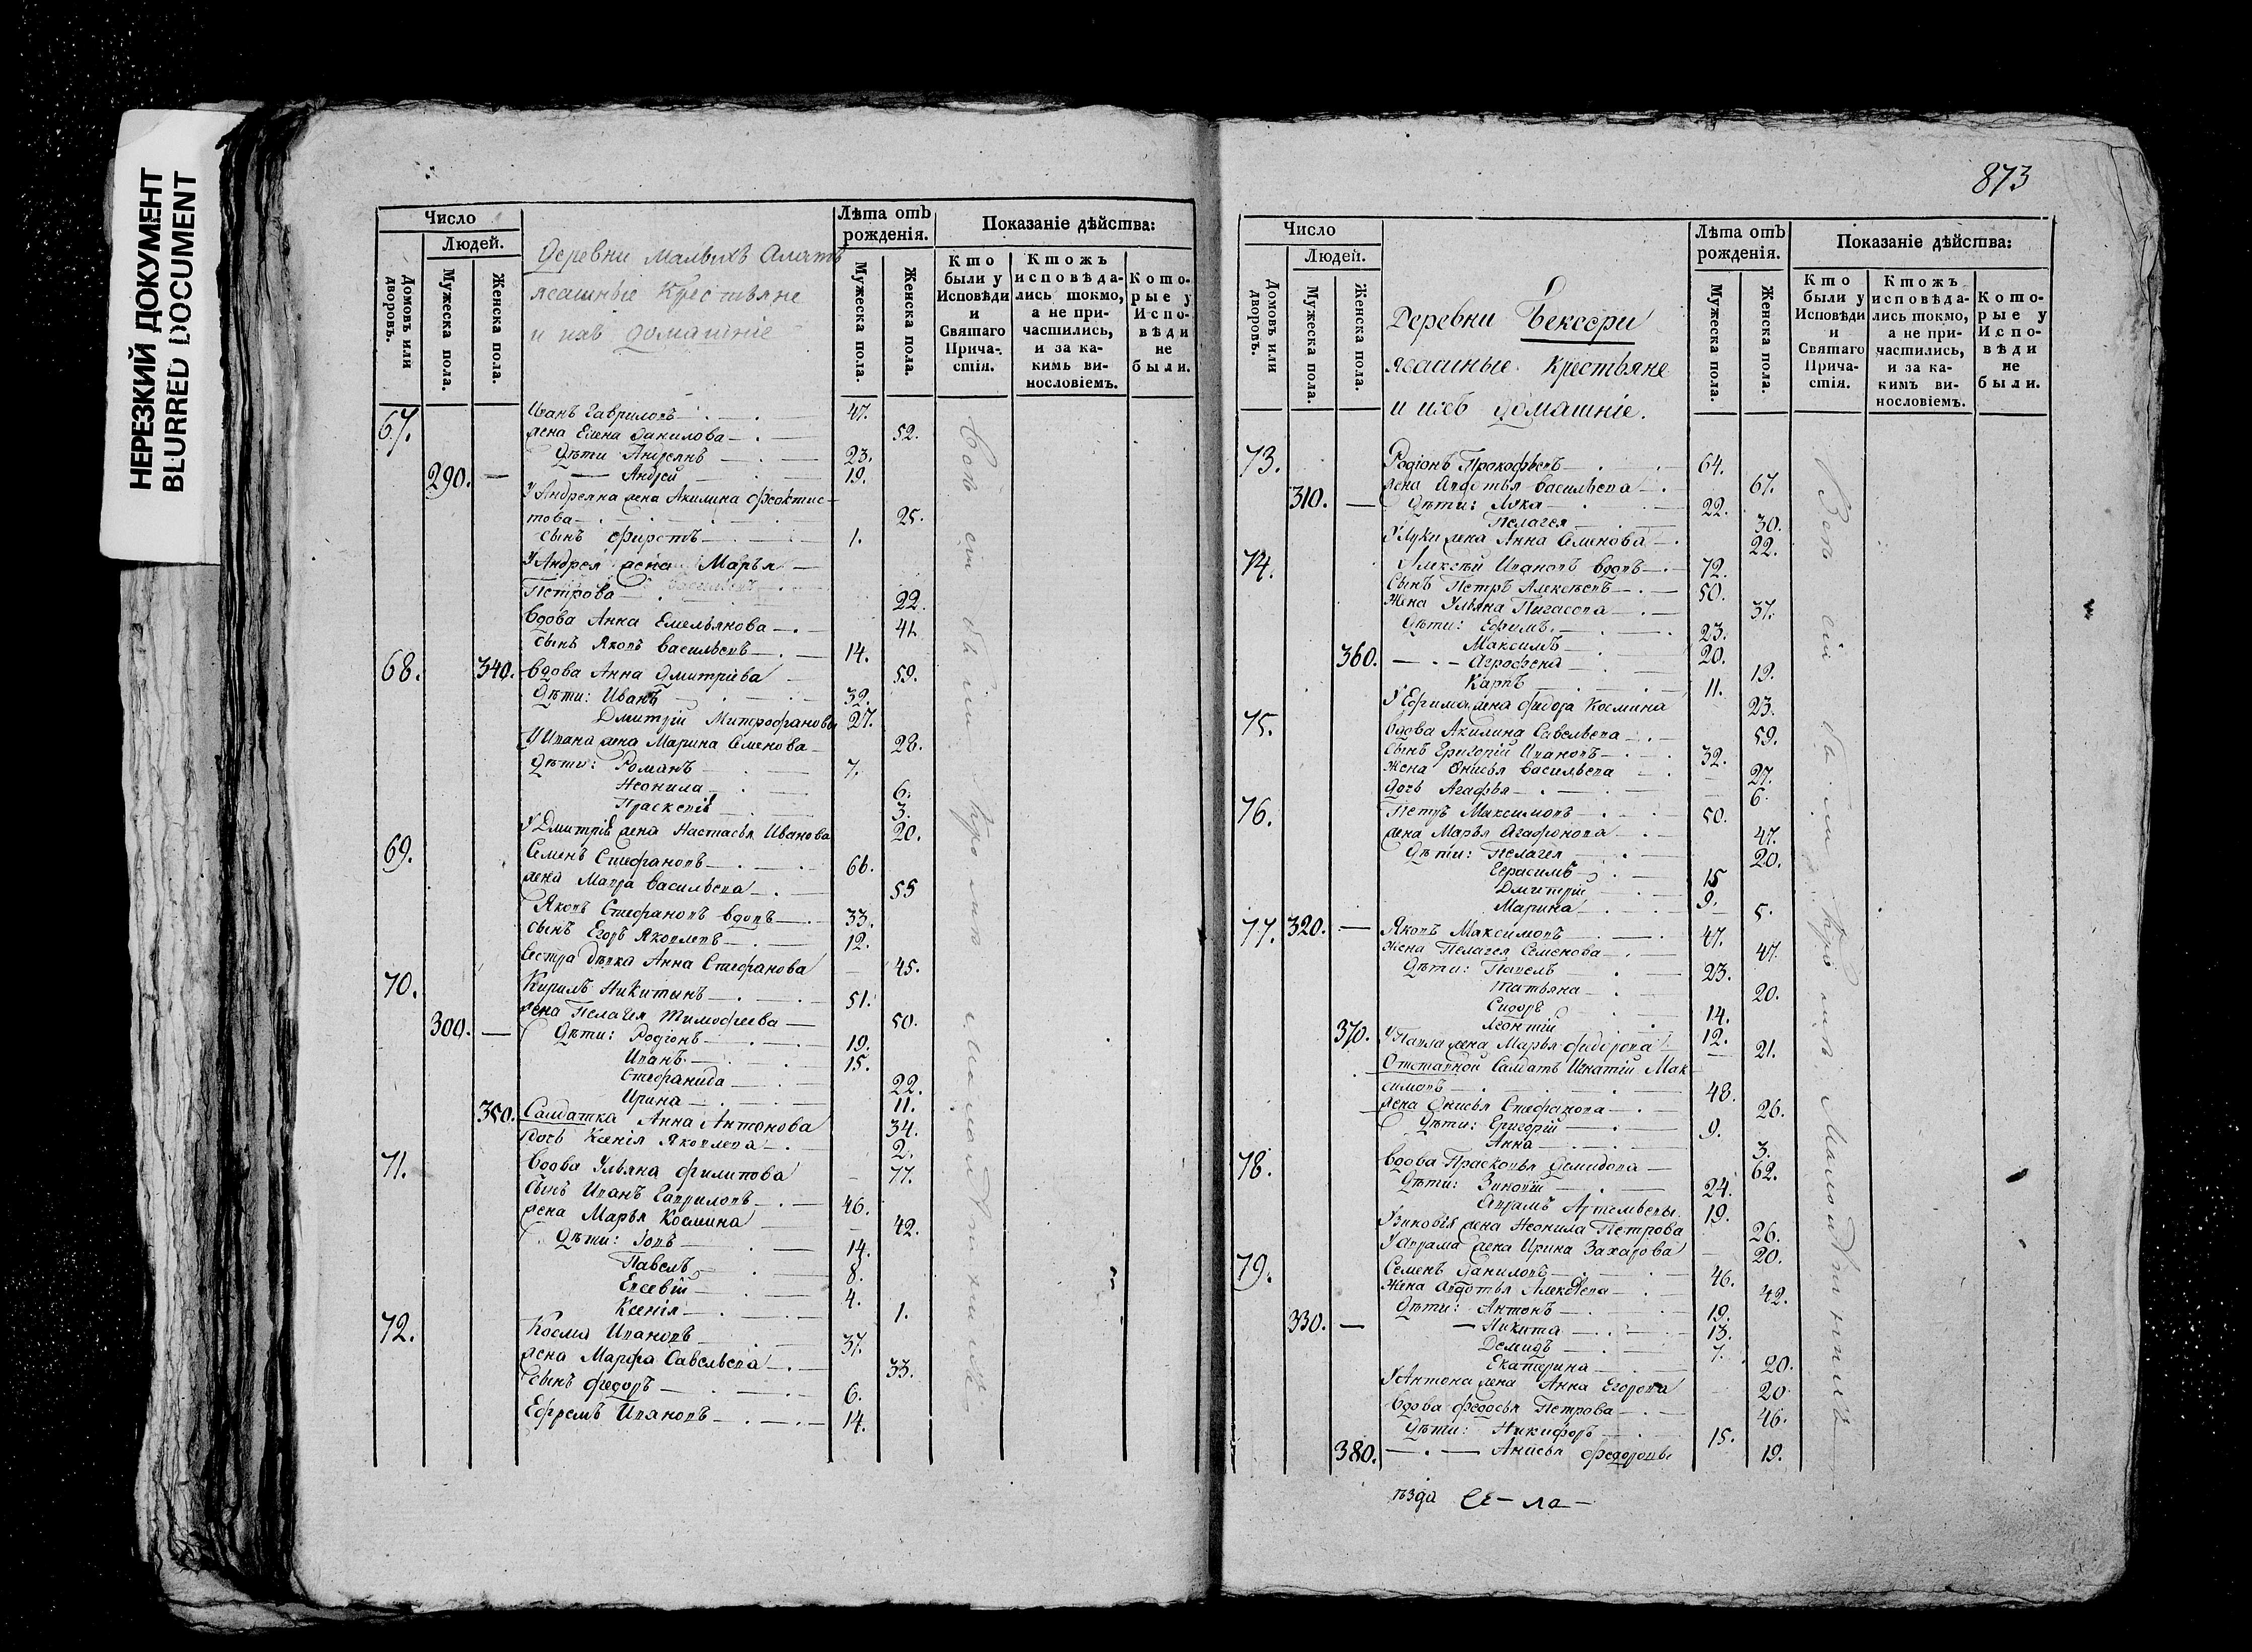 НЕРЕЗКИЙ ДОКУМЕНТ
BLURRED DOCUMENT
Число
Людей.
Домовъ или дворовъ.
Мужеска пола.
Женска пола.
Деревни малыхъ
ясашные крестьяне
и ихъ домашніе
Лѣта отъ рожденія.
Мужеска пола.
Женска пола.
Показаніе дѣйства:
Кто были у Исповѣди и Святаго Причастія.
Ктожъ исповѣдались токмо, а не причастились, и за какимъ винословіемъ.
Которые у Исповѣди не были.
67. Иванъ Гавриловъ 47.
жена Елена Данилова 52.
Дѣти Андреянъ 23.
290. — Андрей 19.
У Андреяна жена Акилина Феоктис-
това 25.
сынъ Фирстъ 1.
У Андрея жена Марья
Петрова 22.
Вдова Анна Емельянова 41.
сынъ Яковъ Васильевъ 14.
68. 340. Вдова Анна Дмитріева 59.
Дѣти: Иванъ 32.
Дмитрій Митрофановы 27.
У Ивана жена Марина Семенова 28.
Дѣти: Романъ 7.
Неонила 6.
Праскевія 3.
У Дмитрія жена Настасья Иванова 20.
69. Семенъ Стефановъ 66.
жена Мавра Васильева 55
Яковъ Стефановъ вдовъ 33.
сынъ Егоръ Яковлевъ 12.
Сестра дѣвка Анна Стефанова 45.
70. Кирилъ Никитинъ 51.
жена Пелагея Тимофеева 50.
300. — Дѣти: Родіонъ 19.
Иванъ 15.
Стефанида 22.
Ирина 11.
350. Салдатка Анна Антонова 34.
дочь Ксенія Яковлева 2.
71. Вдова Ульяна Филипова 77.
Сынъ Иванъ Гавриловъ 46.
жена Марья Космина 42.
Дѣти: Іовъ 14.
Павелъ 8.
Евсевій 4.
Ксенія 1.
72. Косма Ивановъ 37.
жена Марфа Савельева 33.
Сынъ Федоръ 6.
Ефремъ Ивановъ 14.
873
Число
Людей.
Домовъ или дворовъ.
Мужеска пола.
Женска пола.
Деревни Бексери
ясашные крестьяне
и ихъ домашніе.
Лѣта отъ рожденія.
Мужеска пола.
Женска пола.
Показаніе дѣйства:
Кто были у Исповѣди и Святаго Причастія.
Ктожъ исповѣдались токмо, а не причастились, и за какимъ винословіемъ.
Которые у Исповѣди не были.
73. Родіонъ Прокофьевъ 64.
жена Авдотья Васильева 67.
310. — Дѣти: Лука 22.
Пелагея 30.
У Луки жена Анна Семенова 22.
74. Алексѣй Ивановъ вдовъ 72.
Сынъ Петръ Алексѣевъ 50.
Жена Ульяна Пигасова 37.
Дѣти: Ефимъ 23.
Максимъ 20.
360. — Агрофена 19.
Карпъ 11.
У Ефима жена Федора Космина 23.
75. Вдова Акилина Савельева 59.
Сынъ Григорій Ивановъ 32.
Жена Онисья Васильева 27.
дочь Агафья 6.
76. Петръ Максимовъ 50.
жена Марья Агафонова 47.
Дѣти: Пелагея 20.
Герасимъ 15
Дмитрій 9.
Марина 5.
77. 320. — Яковъ Максимовъ 47.
Жена Пелагея Семенова 47.
Дѣти: Павелъ 23.
Татьяна 20.
Сидоръ 14.
Леонтій 12.
370. У Павла жена Марья Федорова 21.
Отставной Салдатъ Игнатій Мак-
симовъ 48.
жена Онисья Стефанова 26.
Дѣти: Григорій 9.
Анна 3.
78. Вдова Прасковья Демидова 62.
Дѣти: Зиновій 24.
Авramъ Артемьевы 19.
У Зиновія жена Неонила Петрова 26.
У Аврама жена Ирина Захарова 20.
79. Семенъ Даниловъ 46.
Жена Авдотья Алексѣева 42.
Дѣти: Антонъ 19.
330. — Никита 13.
Демидъ 7.
Екатерина 20.
У Антона жена Анна Егорова 20
Вдова Федосья Петрова 46.
Дѣти: Никифоръ 15.
380. — Анисья Федоровы 19.
ѣзда Се-ла-